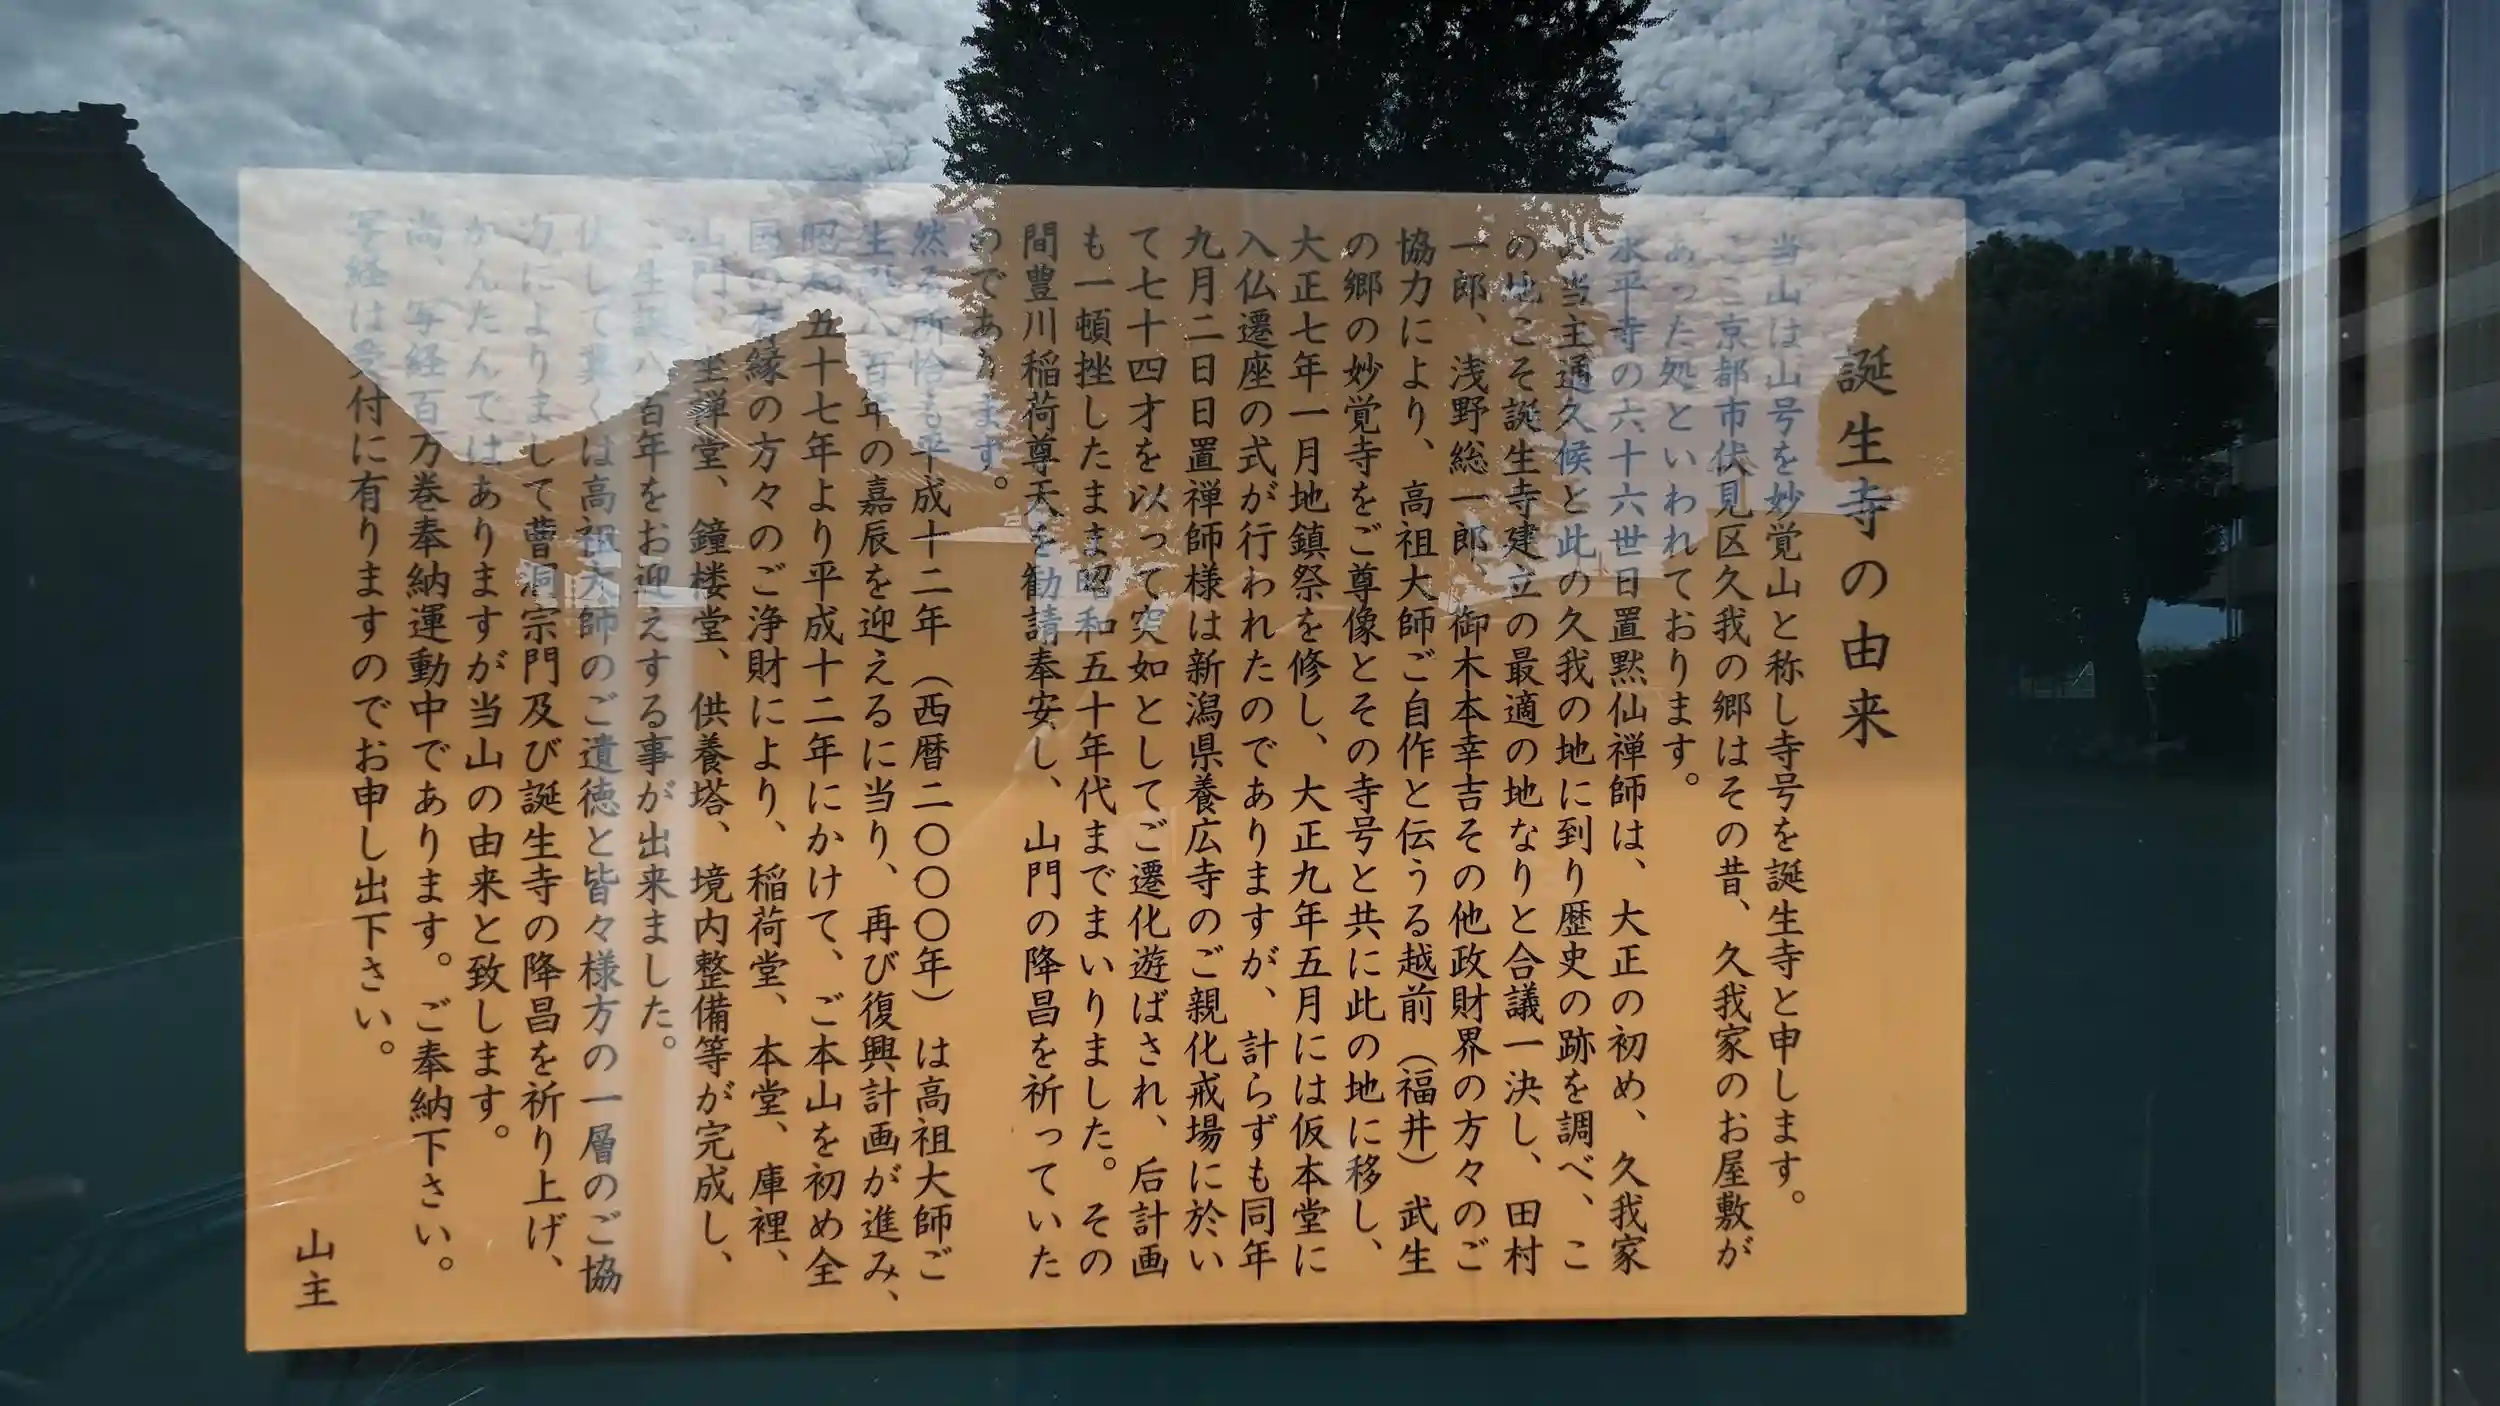 誕生寺の由来
当山は山号を妙覚山と称し寺号を誕生寺と申します。
ここ京都市伏見区久我の郷はその昔、久我家のお屋敷が
あった処といわれております。
永平寺の六十六世日置黙仙禅師は、大正の初め、久我家
の当主通久候と此の久我の地に到り歴史の跡を調べ、こ
の地こそ誕生寺建立の最適の地なりと合議一決し、田村
一郎、浅野総一郎、御木本幸吉その他政財界の方々のご
協力により、高祖大師ご自作と伝うる越前（福井）武生
の郷の妙覚寺をご尊像とその寺号と共に此の地に移し、
大正七年一月地鎮祭を修し、大正九年五月には仮本堂に
入仏遷座の式が行われたのでありますが、計らずも同年
九月二日日置禅師様は新潟県養広寺のご親化戒場に於い
て七十四才を以って突如としてご遷化遊ばされ、后計画
も一頓挫したまま昭和五十年代までまいりました。その
間豊川稲荷尊天を勧請奉安し、山門の降昌を祈っていた
のであります。
然る所恰も平成十二年（西暦二〇〇〇年）は高祖大師ご
生誕八百年の嘉辰を迎えるに当り、再び復興計画が進み、
昭和五十七年より平成十二年にかけて、ご本山を初め全
国の有縁の方々のご浄財により、稲荷堂、本堂、庫裡、
山門、坐禅堂、鐘楼堂、供養塔、境内整備等が完成し、
ご生誕八百年をお迎えする事が出来ました。
伏して冀くは高祖大師のご遺徳と皆々様方の一層のご協
力によりまして曹洞宗門及び誕生寺の降昌を祈り上げ、
かんたんではありますが当山の由来と致します。
尚、写経百万巻奉納運動中であります。ご奉納下さい。
写経は受付に有りますのでお申し出下さい。
山主